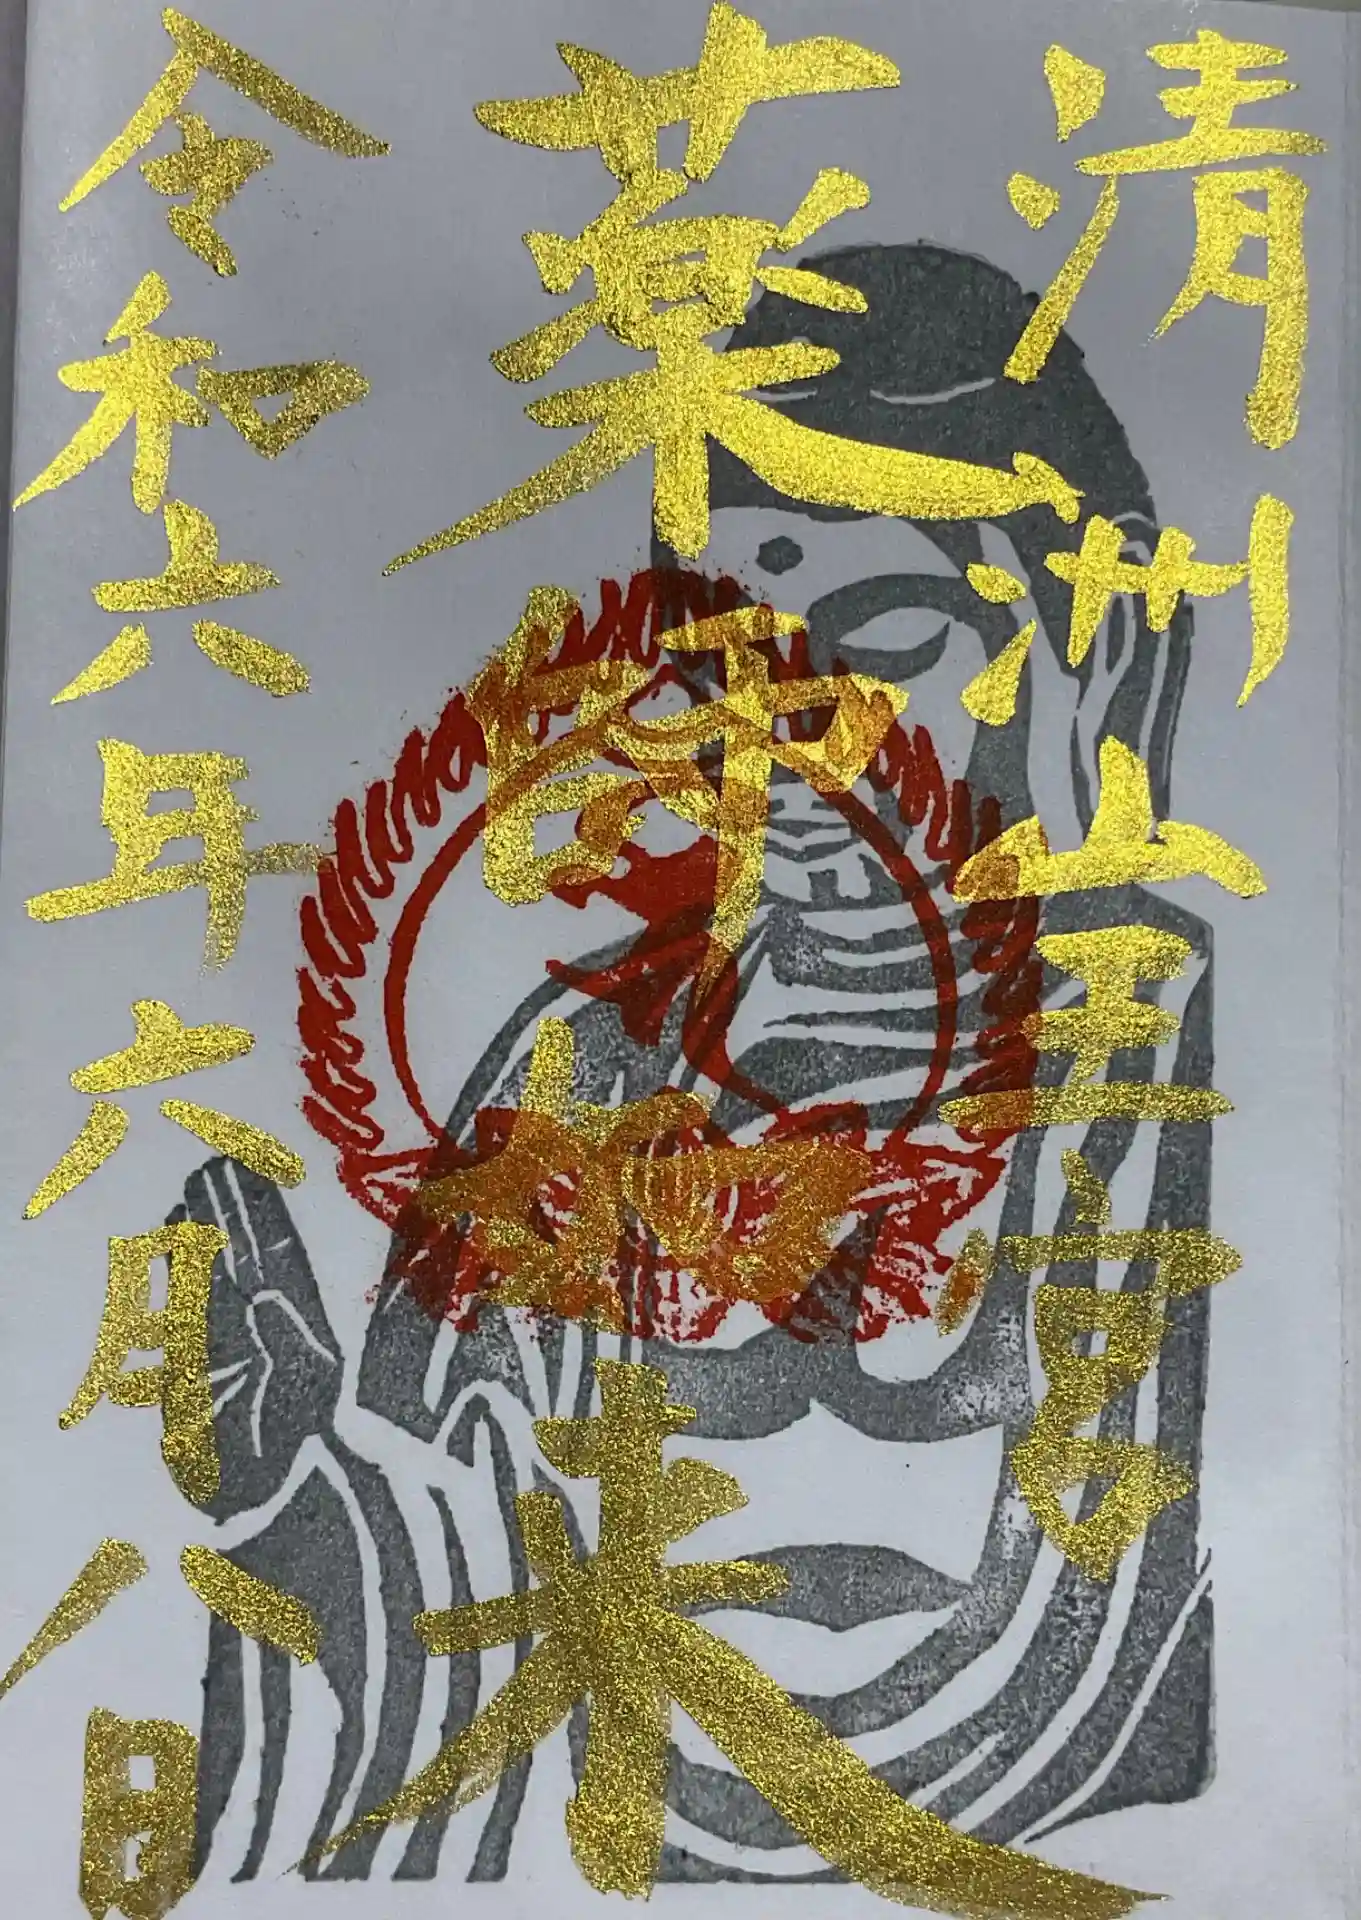 清洲山王宮
薬師如来
令和六年六月八日